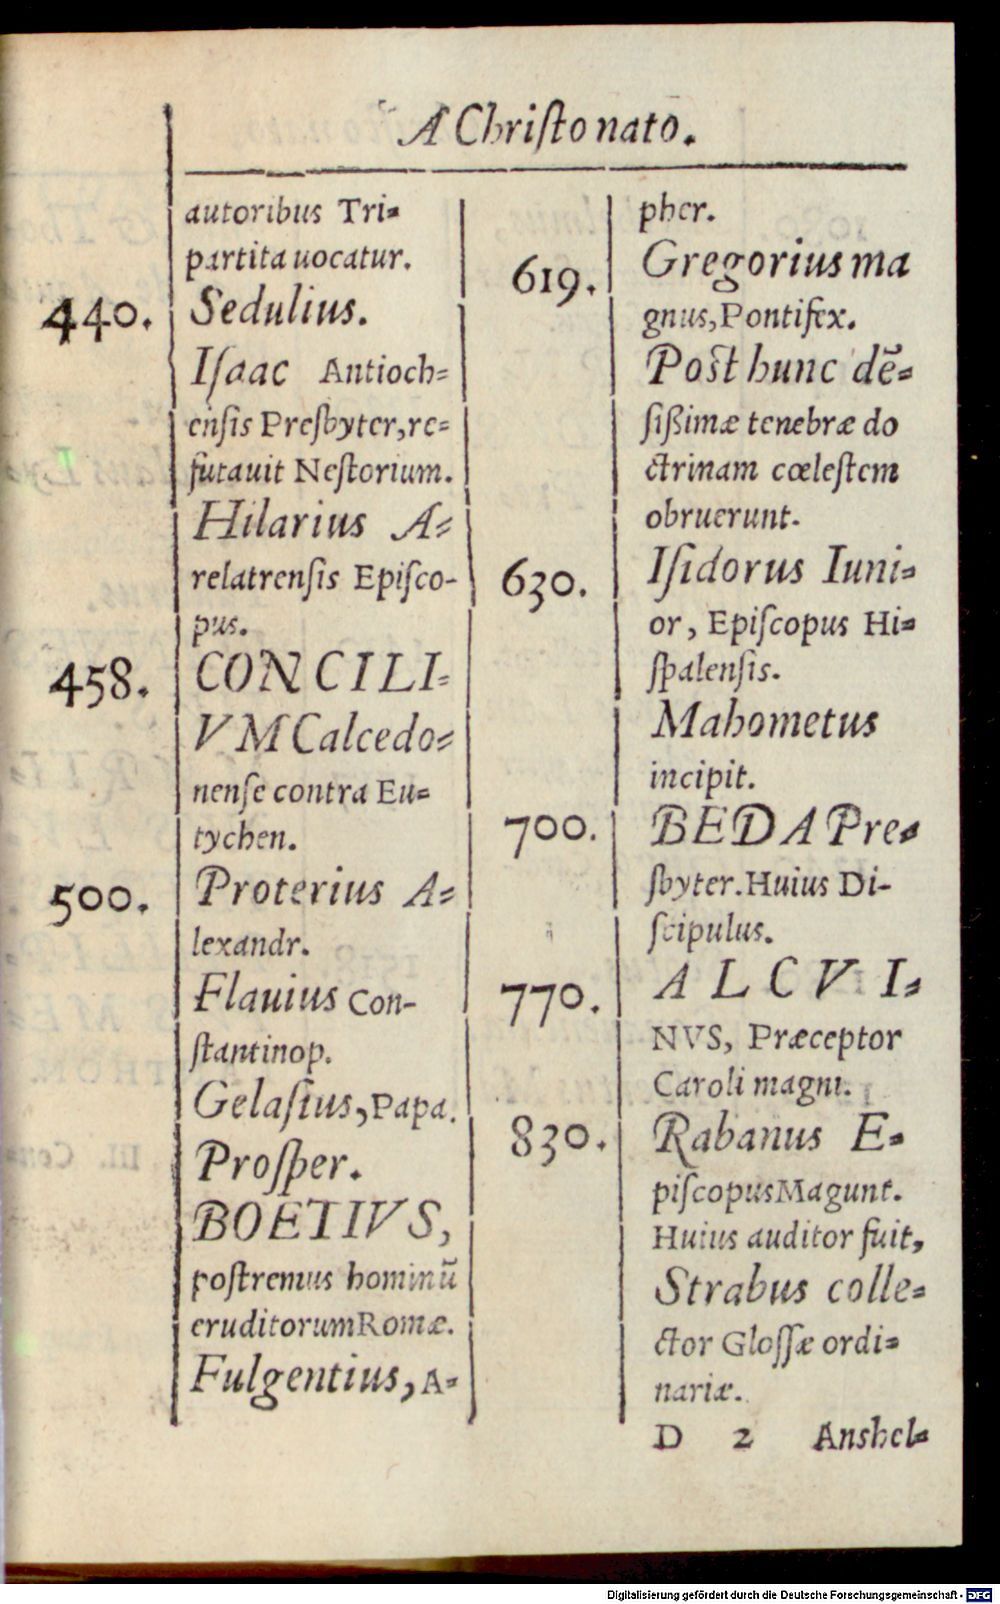 A Chriſto nato.
autoribus Tri=
partita uocatur.
440. Sedulius.
Iſaac Antioch=
enſis Preſbyter, re=
futauit Neſtorium.
Hilarius A=
relatrenſis Epiſco-
pus.
458. CONCILI=
VM Calcedo=
nenſe contra Eu=
tychen.
500. Proterius A=
lexandr.
Flauius Con-
ſtantinop.
Gelaſius, Papa.
Proſper.
BOETIVS,
poſtremus hominū
eruditorum Romæ.
Fulgentius, A=
pher.
619. Gregorius ma
gnus, Pontifex.
Poſt hunc dē=
ſißimæ tenebræ do
ctrinam cœleſtem
obruerunt.
630. Iſidorus Iuni=
or, Epiſcopus Hi=
ſpalenſis.
Mahometus
incipit.
700. BEDA Pre=
ſbyter. Huius Di-
ſcipulus.
770. ALCVI=
NVS, Præceptor
Caroli magni.
830. Rabanus E=
piſcopus Magunt.
Huius auditor fuit,
Strabus colle=
ctor Gloſſæ ordi=
nariæ.
D 2 Anshel=
Digitalisierung gefördert durch die Deutsche Forschungsgemeinschaft - DFG